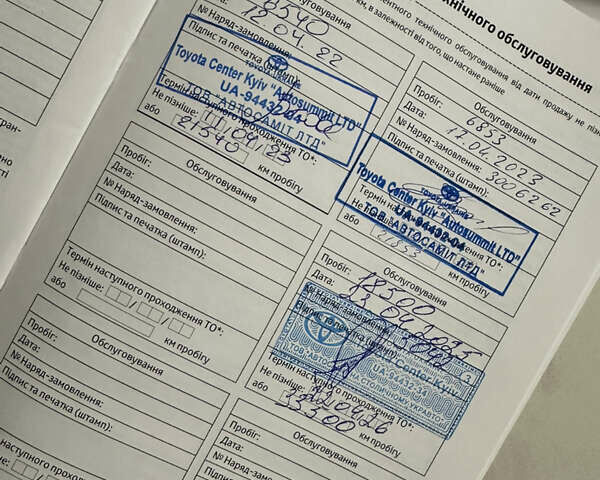 технічного обслуговування
ментного технічного обслуговування від дати продажу не пізн
ки, в залежності від того, що настане раніше
Обслуговування
8540
12.04.22
№ Наряд-замовлення:
Підпис та печатка (штамп):
TOYOTA
Toyota Center Kyiv "Autosummit LTD"
UA-94432-04
ТОВ "АВТОСАМІТ ЛТД"
Не пізніше: 11/04/23
або 21540 км пробігу
Обслуговування
Пробіг: 6853
Дата: 12.04.2023
№ Наряд-замовлення: 3006262
Підпис та печатка (штамп):
Toyota Center Kyiv "Autosummit LTD"
Термін наступного проходження ТО*:
UA-94432-04
ТОВ "АВТОСАМІТ ЛТД"
або 21853 км пробігу
Обслуговування
Пробіг:
Дата:
№ Наряд-замовлення:
Підпис та печатка (штамп):
Термін наступного проходження ТО*:
Не пізніше:
або км пробігу
Обслуговування
Пробіг: 18300
Дата:
№ Наряд-замовлення:
Підпис та печатка (штамп):
Center Kyiv
ТОВ "АВТО
UA-94432-04
Термін наступного проходження ТО*:
Не пізніше: 12.04.26
або 33300 км пробігу
Обслуговування
Пробіг:
Дата:
№ Наряд-замовлення:
Підпис та печатка (штамп):
Термін наступного проходження ТО*:
Не пізніше:
Обслуговування
Пробіг:
Дата:
№ Наряд-замовлення: